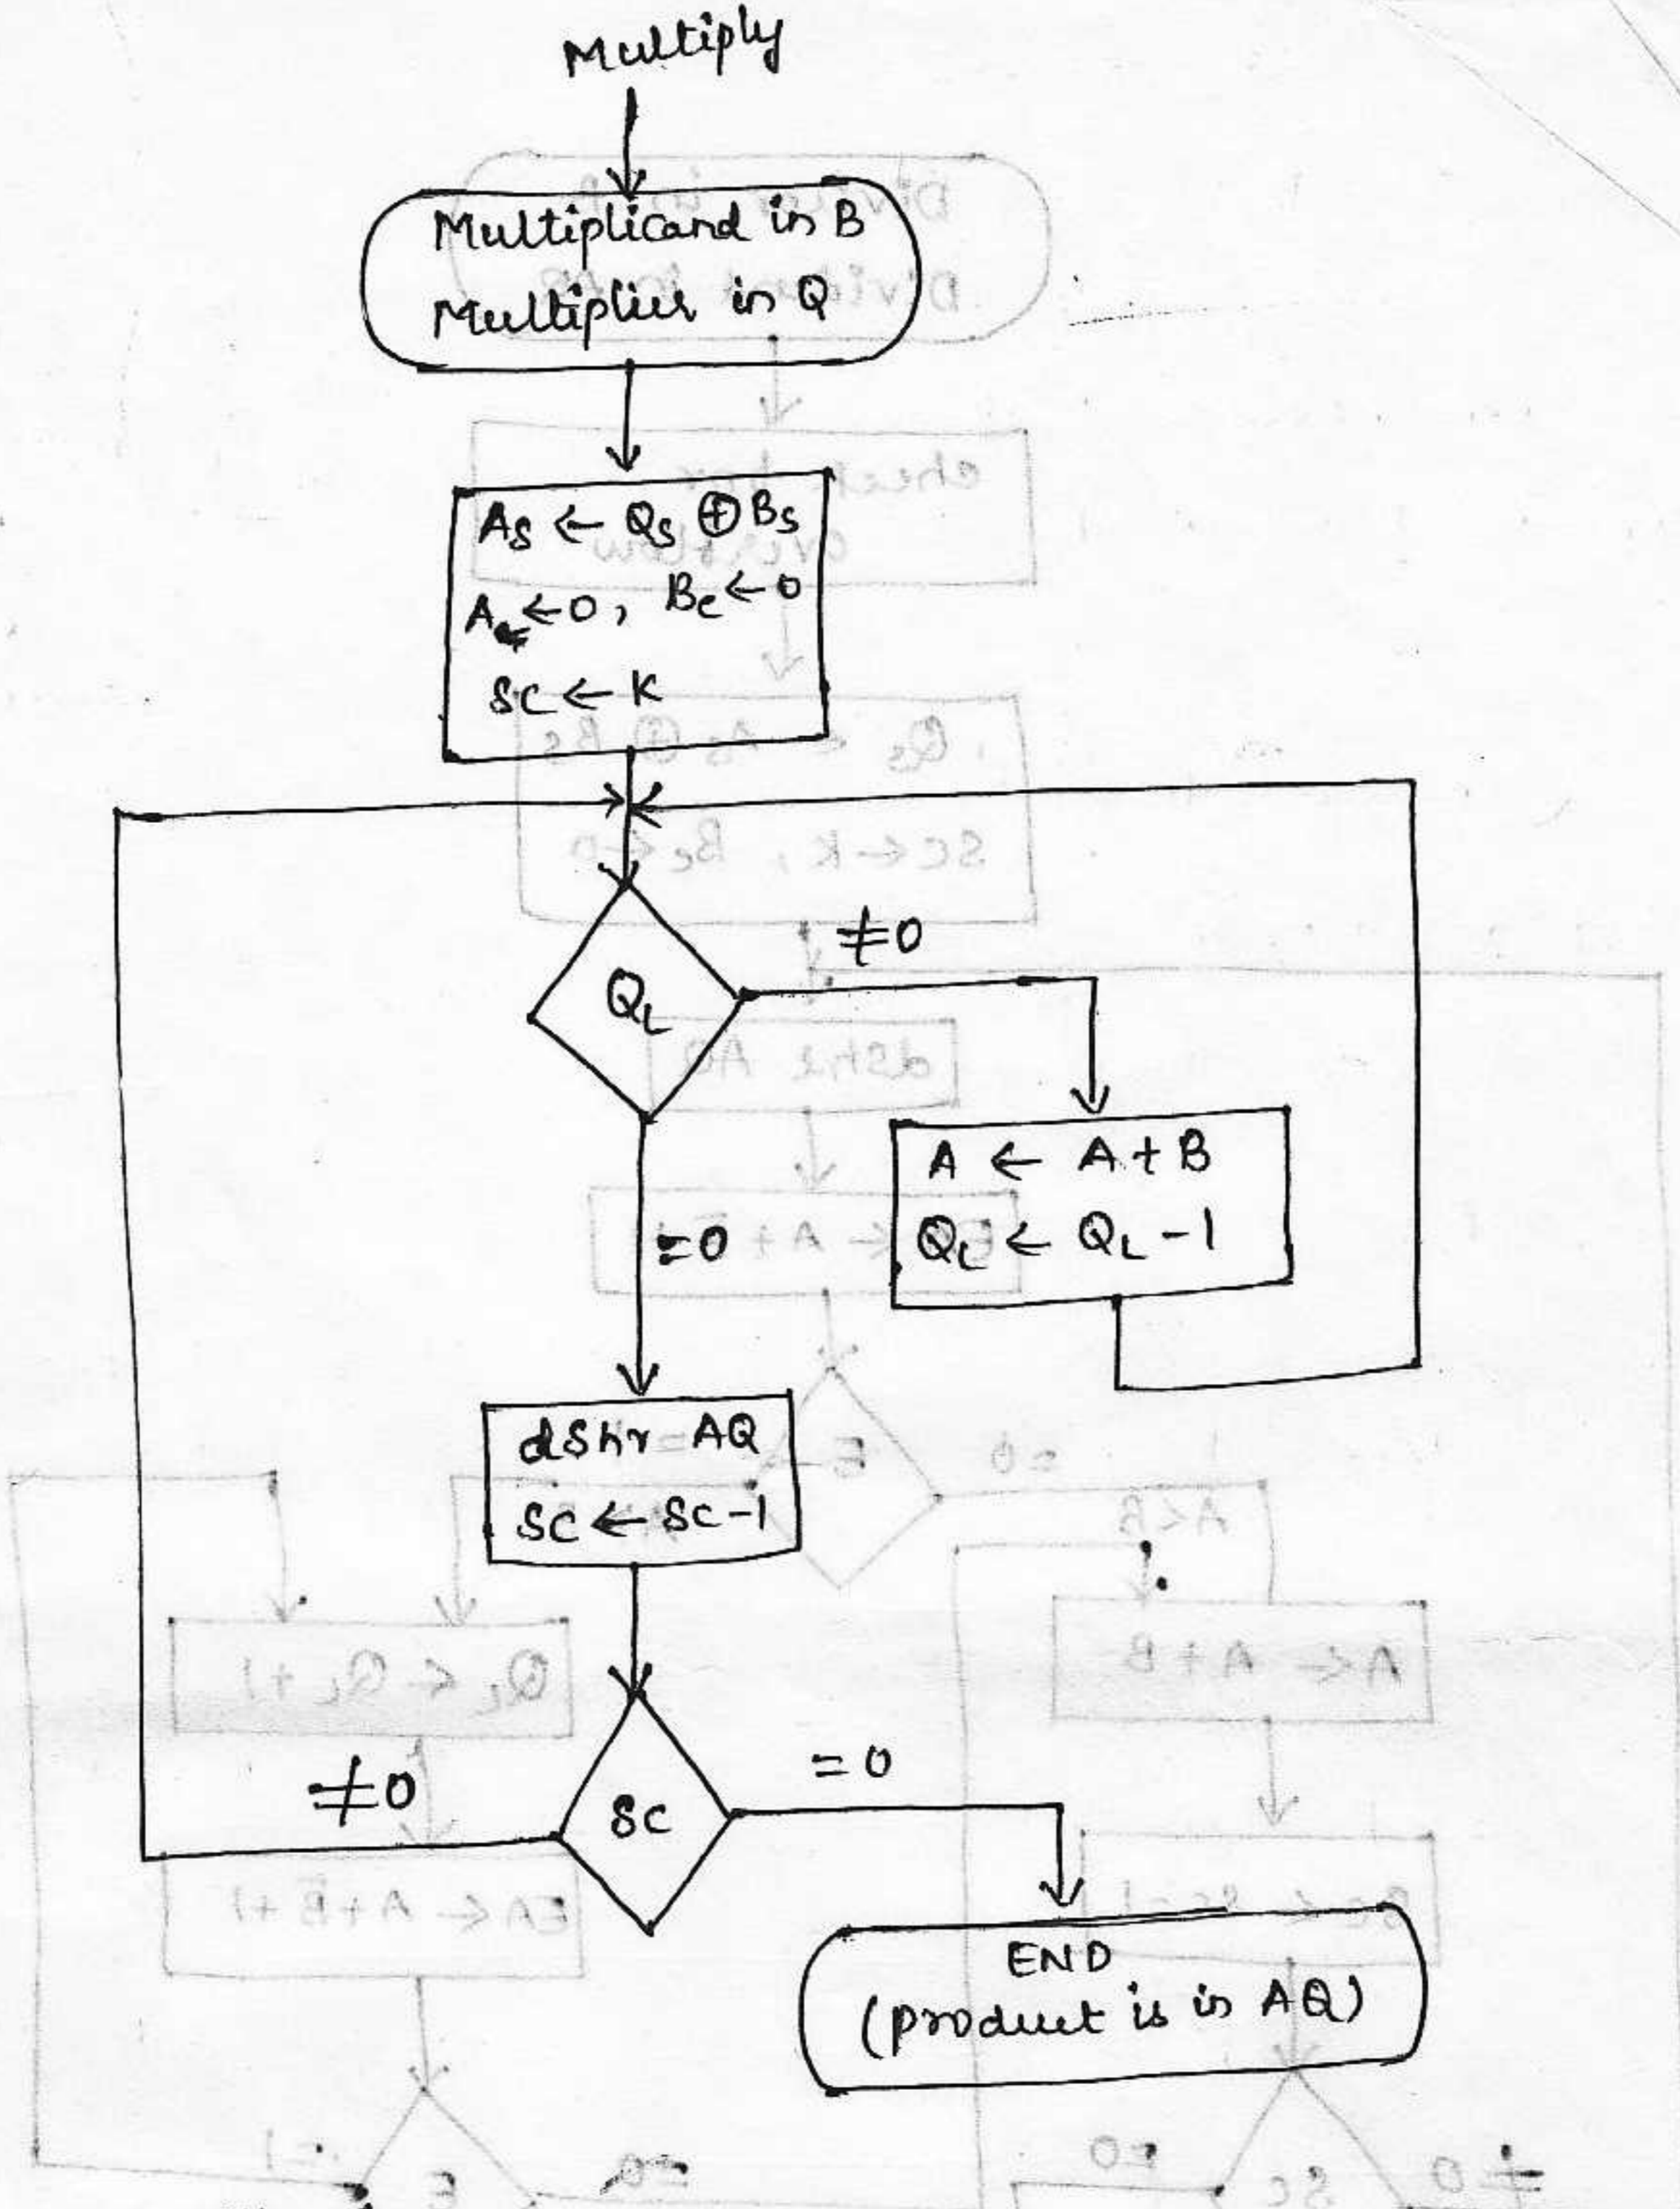 Multiply
Multiplicand in B
Multiplier in Q
As ← Qs ⊕ Bs
A ← 0, Be ← 0
SC ← K
QL
≠0
A ← A + B
QL ← QL - 1
=0
dshr AQ
SC ← SC-1
≠0
SC
=0
END
(product is in AQ)